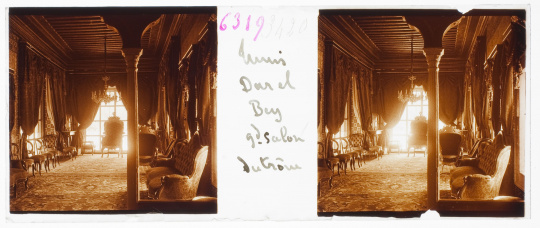 6319 3420
Tunis
Dar el
Bey
gd salon
du trône